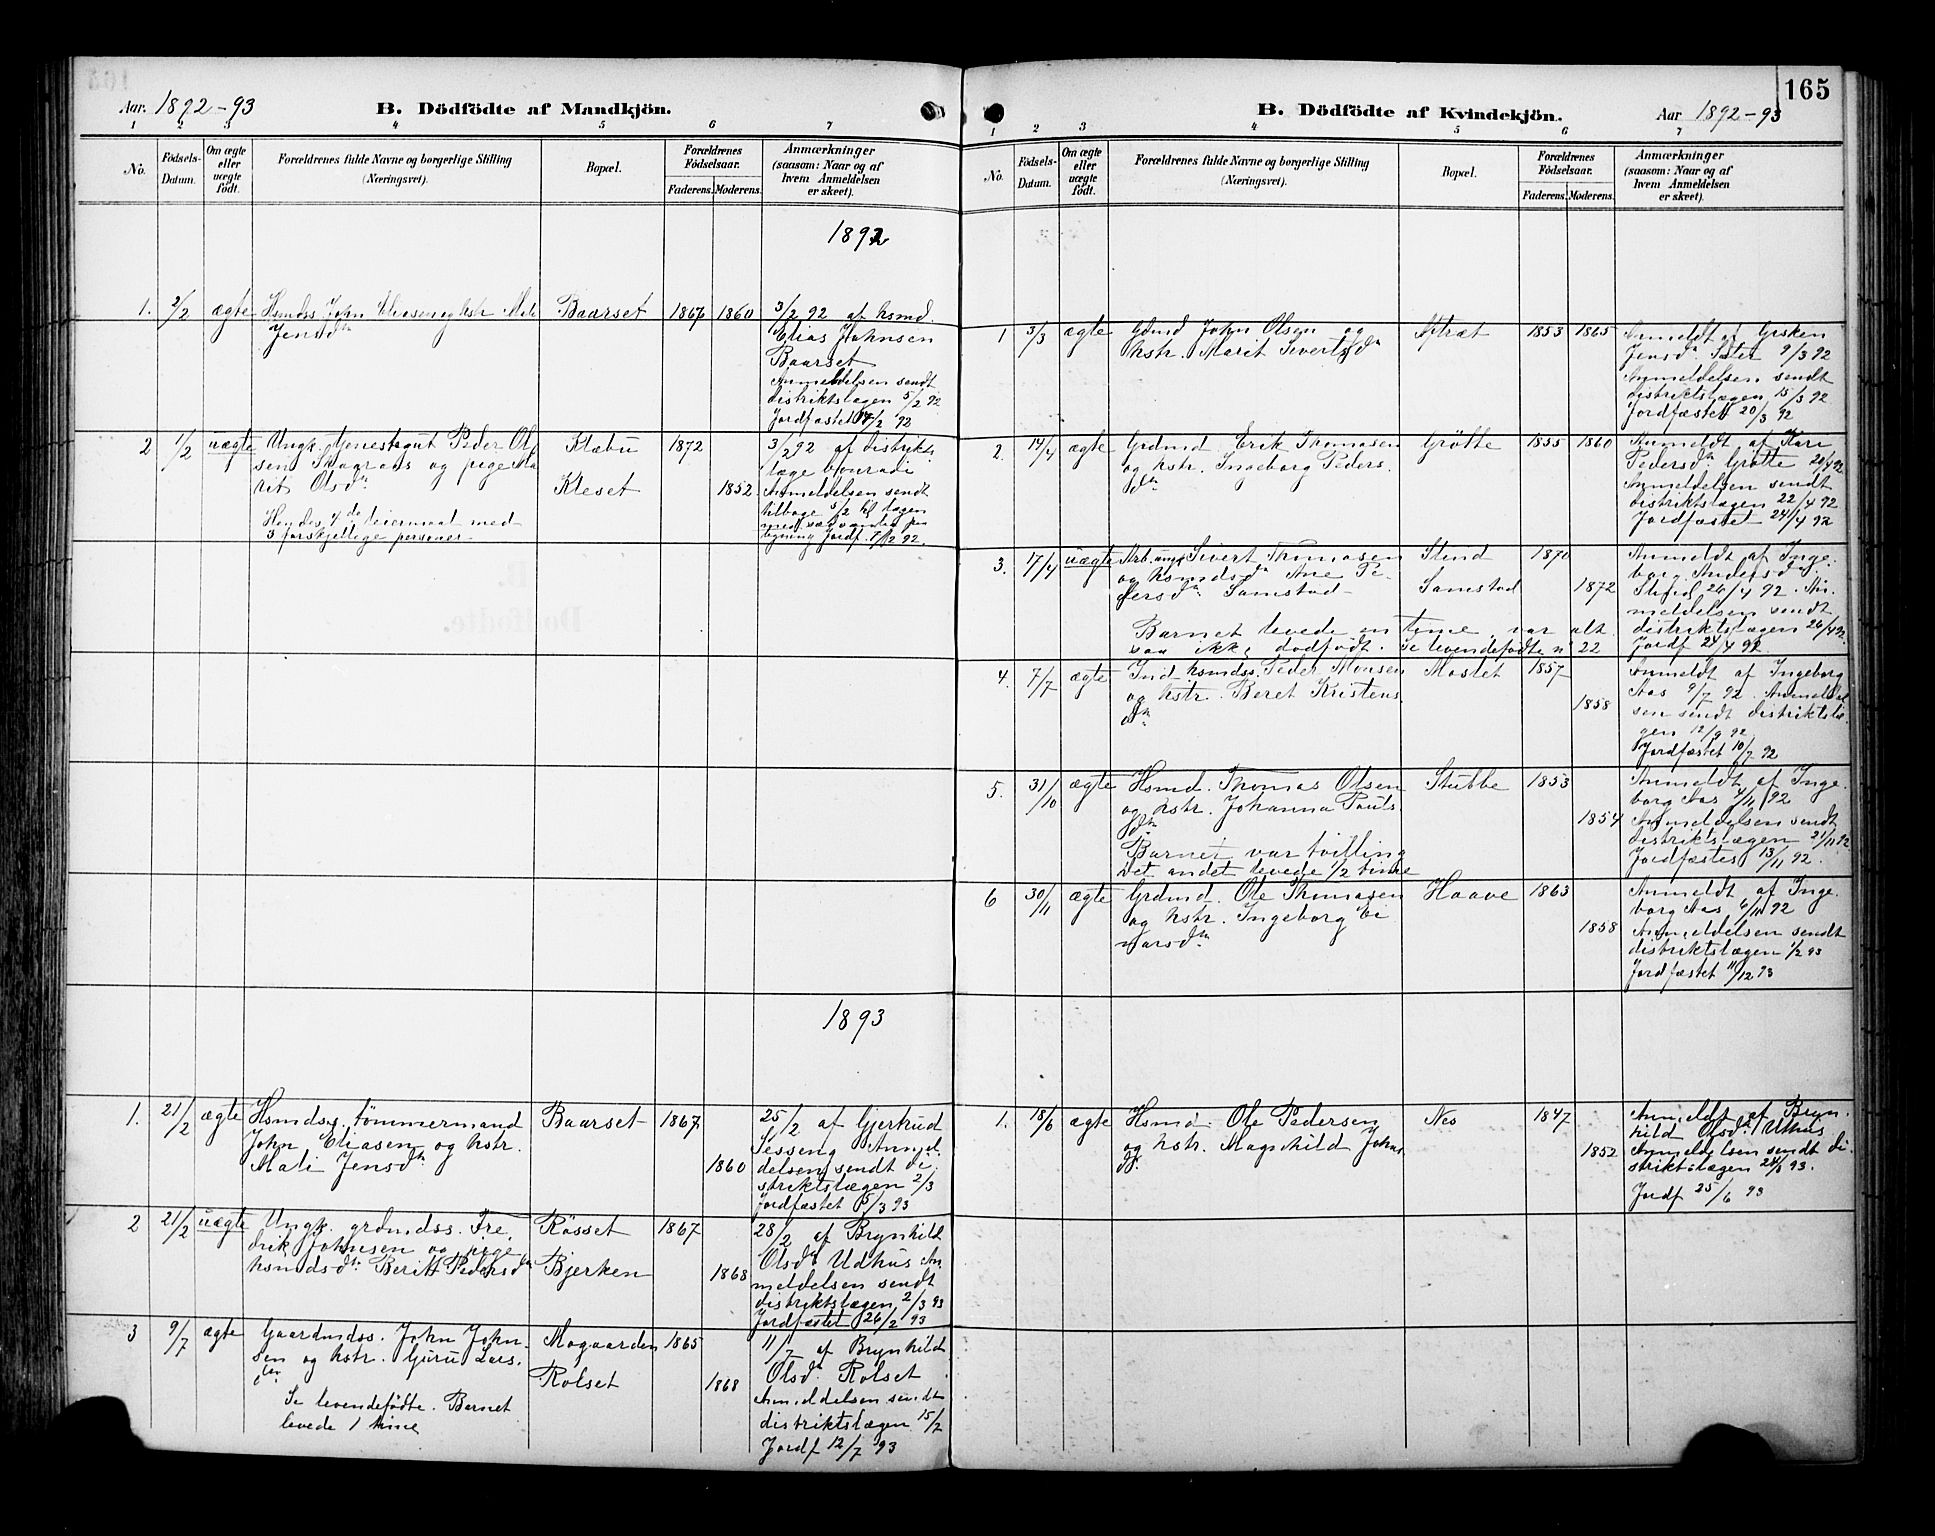 Aar. 1892-93
B. Dödfödte af Mandkjön.
1 2 3 4 5 6 7
No.
Födsels-Datum.
Om ægte eller uægte födt.
Forældrenes fulde Navne og borgerlige Stilling
(Næringsvei).
Bopæl.
Forældrenes Födselsaar.
Faderens. Moderens.
Anmærkninger
(saasom: Naar og af
hvem Anmeldelsen
er skeet).
1892
1. 2/2 ægte Hsmdss. John Eliasen og hstr. Mali
Jensdtr
Baarset 1867 1860
3/2 92 af hsmd.
Elias Johnsen
Baarset
Anmeldelsen sendt
distriktslægen 5/2 92
Jordfæstet 14/2 92
2 1/2 uægte Ungk. tjenestegut Peder Ol
sen og pige Ma
rit Olsdtr
Hendes 4de leiermaal med
3 forskjellige personer
Klæbu 1872
Kleset 1852
3/2 92 af distrikts
læge Conradi
Anmeldelsen sendt
tilbage 5/2 til lægen
Jordf. 7/2 92.
1893
1. 21/2 ægte Hsmdss. tömmermand
John Eliasen og hstr.
Mali Jensdtr
Baarset 1867
1860
25/2 af Gjertrud
Sesseng Anmel
delsen sendt di
striktslægen 2/3
Jordfæstet 5/3 93
2 21/2 uægte Ungk. grdmdss. Fre
drik Johnsen og pige
hsmdsdtr Berit Pedersdtr
Rösset 1867
Bjerken 1868
28/2 af Brynhild
Olsdtr Udhus An
meldelsen sendt
distriktslægen 2/3 93
Jordfæstet 26/2 93
3 9/7 ægte Gaardmdss. John John
sen og hstr. Guru Lars
dtr
Se levendefödte. Barnet
levede 1 time
Mogaarden 1865
Rolset 1868
11/7 af Brynhild
Olsdtr Rolset
Anmeldelsen sendt
distriktslægen 15/7
Jordf 12/7 93
165
B. Dödfödte af Kvindekjön.
Aar 1892-93
1 2 3 4 5 6 7
No.
Födsels-Datum.
Om ægte eller uægte födt.
Forældrenes fulde Navne og borgerlige Stilling
(Næringsvei).
Bopæl.
Forældrenes Födselsaar.
Faderens. Moderens.
Anmærkninger
(saasom: Naar og af
hvem Anmeldelsen
er skeet).
1 3/3 ægte Gdmd John Olsen og
hstr. Marit Sivertsdtr
1853 1865
Anmeldt af Gjesken
Jensdtr 9/3 92
Anmeldelsen sendt
distriktslægen 15/3 92
Jordfæstet 20/3 92
2. 14/4 ægte Grdmd Erik Thomasen
og hstr. Ingeborg Peders
dtr
Grötte 1855 1860
Anmeldt af Kari
Pedersdtr Grötte
Anmeldelsen sendt
distriktslægen 22/4 92
Jordfæstet 24/4 92
3. 17/4 uægte Arb. ungk. Sivert Thomasen
og hsmdsdtr Ane Pe
dersdtr Samstad
Barnet levede en time, var alt
saa ikke dödfödt. Se levendefödte nr 22
1870
Samstad 1872
Anmeldt af Inge
borg Andersdtr
26/4 92. An
meldelsen sendt
distriktslægen 26/4 92
Jordf 24/4 92
4. 7/7 ægte Ind. hsmdss. Peder Monsen
og hstr. Beret Kristens
dtr
Mostet 1857
1858
Anmeldt af Ingeborg
Aas 9/7 92. Anmeldel
sen sendt distriktslæ
gen 12/9 92
Jordfæstet 10/7 92
5. 31/10 ægte Hsmd. Thomas Olsen
og hstr. Johanna Pauls
dtr
Barnet var tvilling
Det andet levede 1/2 time
Stubbe 1853
1854
Anmeldt af Inge
borg Aas 4/11 92
Anmeldelsen sendt
distriktslægen 21/11 92
Jordfæstes 13/11 92.
6 30/11 ægte Grdmd. Ole Thomasen
og hstr. Ingeborg Ei
narsdtr
Haave 1863
1858
Anmeldt af Inge
borg Aas 6/11 92
Anmeldelsen sendt
distriktslægen 1/2 93
Jordfæstet 11/12 93
1. 18/6 ægte Hsmd. Ole Pedersen
og hstr. Magnhild Johns
dtr.
Nes 1847
1852
Anmeldt af Bryn
hild Olsdtr Uthus
Anmeldelsen sendt di
striktslægen 93.
Jordf 25/6 93